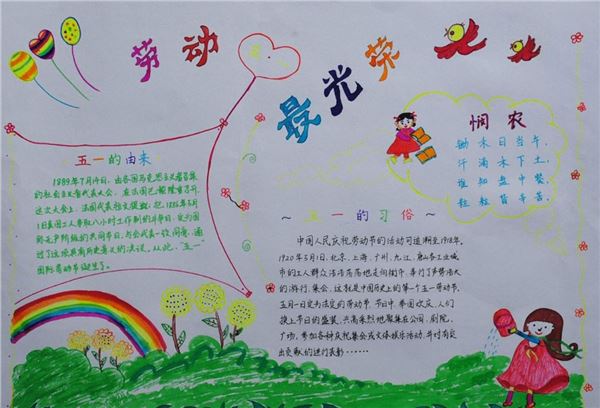 劳动
最光荣
五一的由来
1889年7月14日，由各国马克思主义者召集
的社会主义者代表大会，在法国巴黎隆重召开，
这次大会上，法国代表拉文提议：把1886年5月
1日美国工人争取八小时工作制的斗争日，定为国
际无产阶级的共同节日，与会代表一致同意，通
过了这项具有历史意义的决议，从此，“五一”
国际劳动节诞生了。
悯农
锄禾日当午，
汗滴禾下土，
谁知盘中餐，
粒粒皆辛苦。
~五一的习俗~
中国人民庆祝劳动节的活动可追溯至1918年，
1920年5月1日，北京、上海、广州、九江、唐山各工业城
市的工人群众浩浩荡荡地走向街市、举行了声势浩大
的游行、集会，这就是中国历史上的第一个五一劳动节，
五月一日定为法定的劳动节，节日中，举国欢庆，人们
换上节日的盛装，兴高采烈地聚集在公园、剧院、
广场，参加各种庆祝集会或文体娱乐活动，并对有突
出贡献的进行表彰……